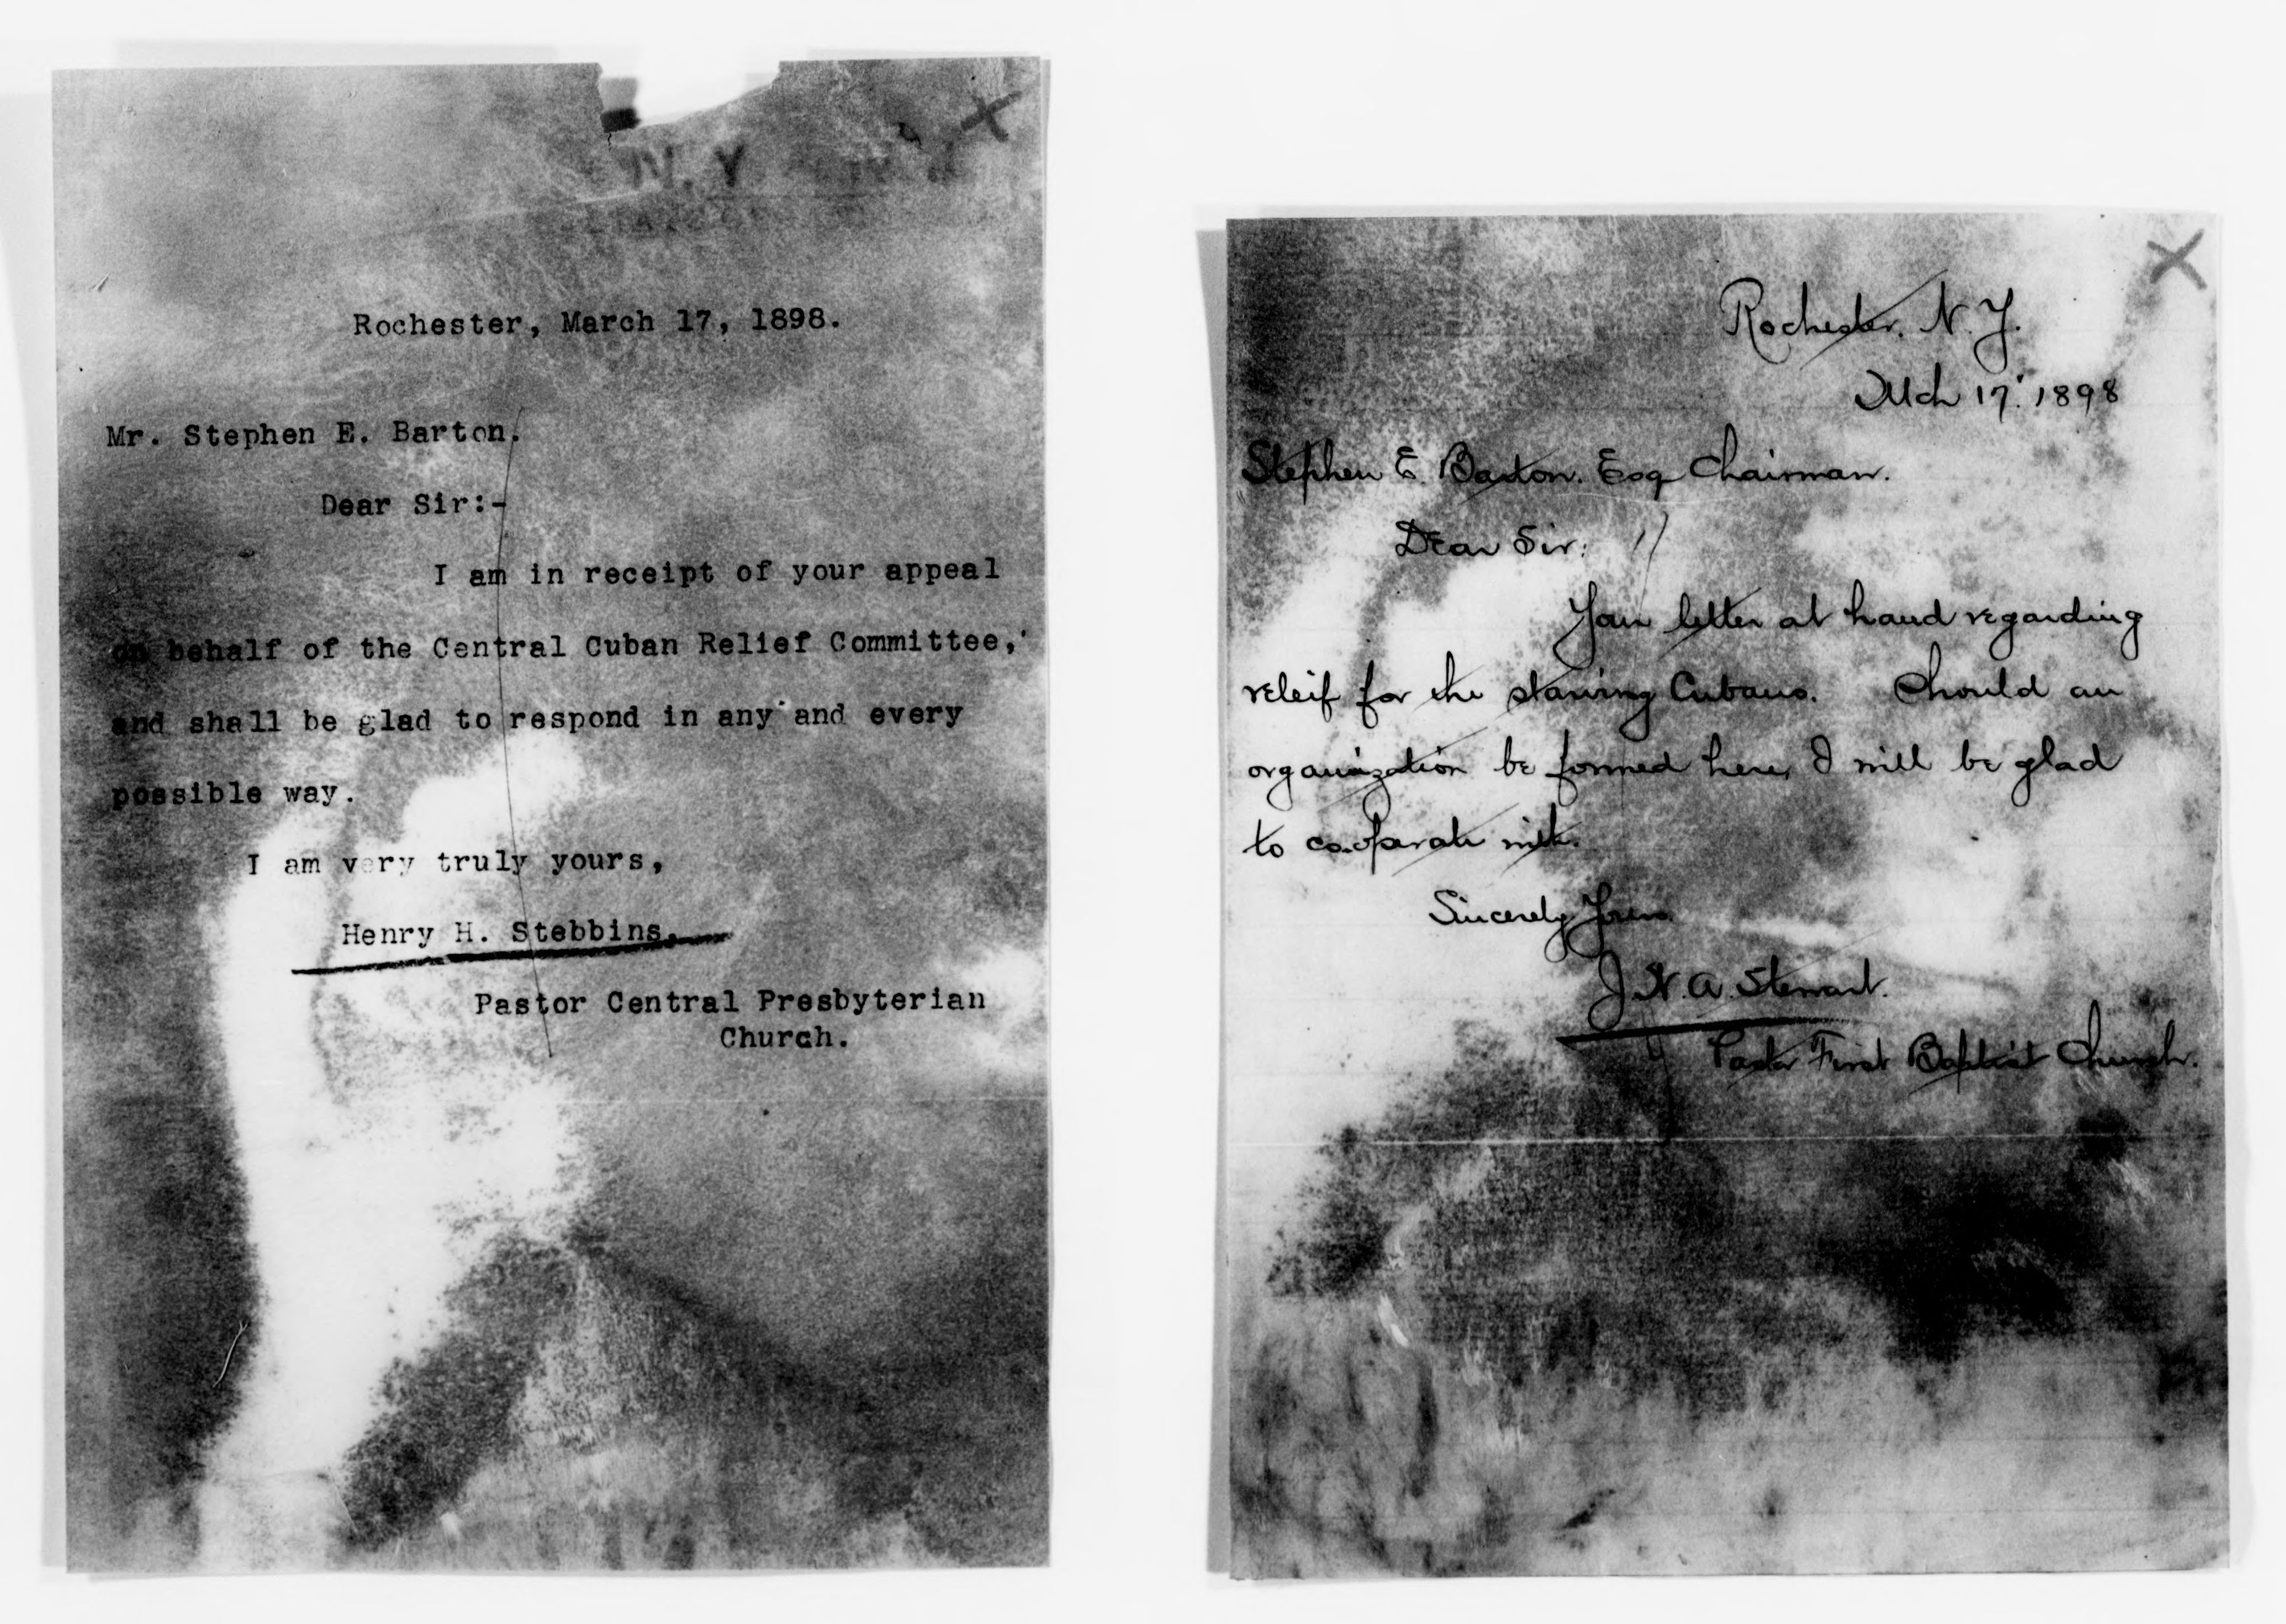 N. Y
Rochester, March 17, 1898.
Mr. Stephen E. Barton.
Dear Sir:-
I am in receipt of your appeal
on behalf of the Central Cuban Relief Committee,
and shall be glad to respond in any and every
possible way.
I am very truly yours,
Henry H. Stebbins.
Pastor Central Presbyterian
Church.
X
Rochester. N. Y.
Mch 17. 1898
Stephen E. Barton. Esq Chairman.
Dear Sir:
Your letter at hand regarding
releif for the starving Cubans. Should an
organization be formed here, I will be glad
to cooperate with.
Sincerely Yours
J. W. A. Stewart.
Pastor First Baptist Church.
X